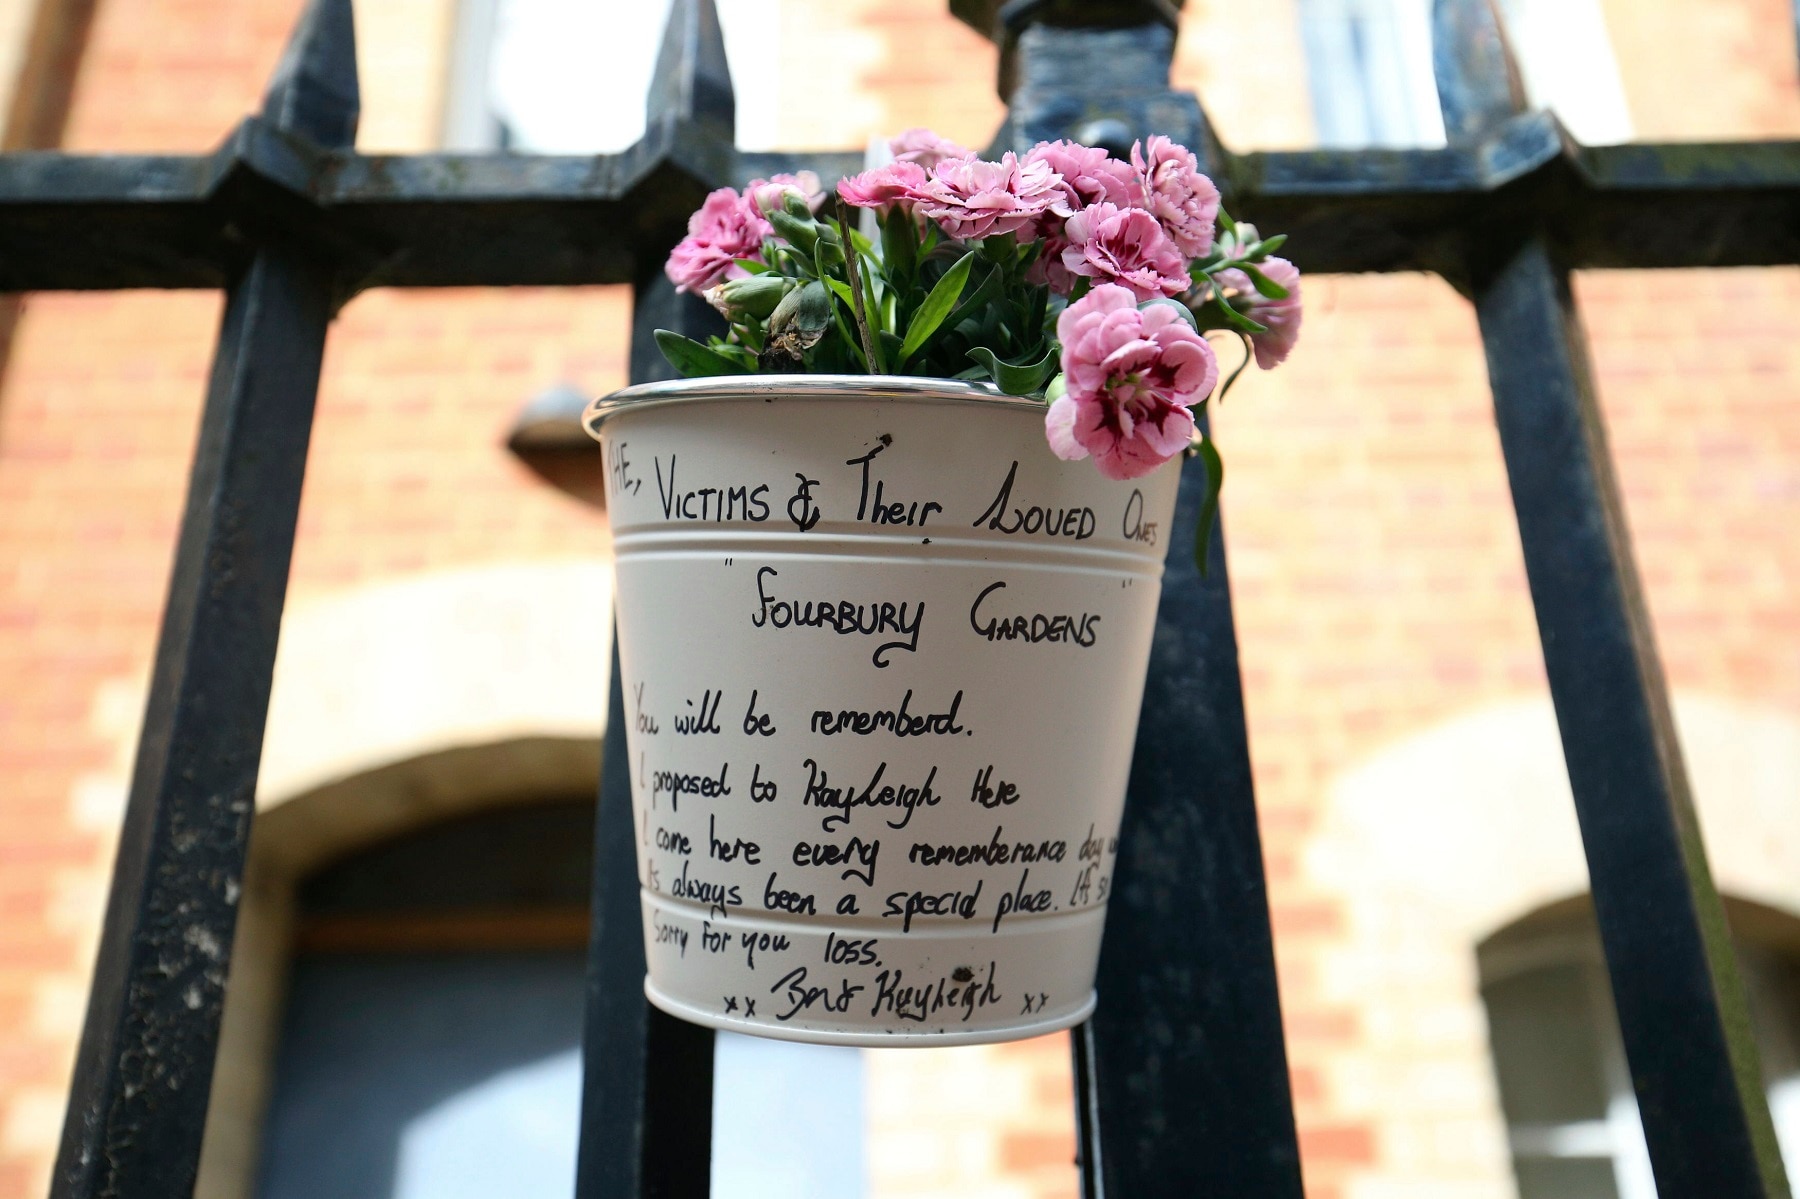 THE, VICTIMS & Their Loved Ones
"FOURBURY GARDENS"
You will be rememberd.
I proposed to Kayleigh Here
I come here every rememberance day
Its always been a special place. It's
Sorry for you loss.
xx Ben & Kayleigh xx